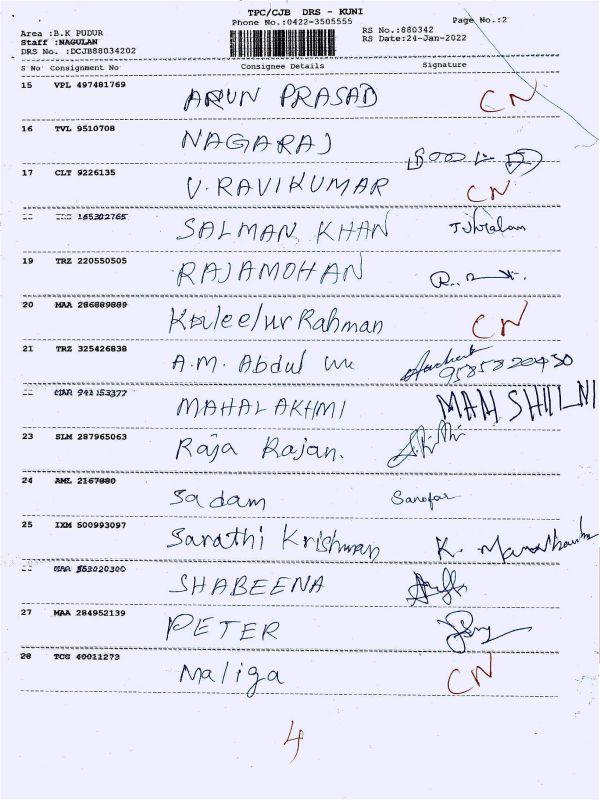 TPC/CJB DRS - KUNI
Phone No.:0422-3505555
Page No.:2
Area :B.K PUDUR
Staff :NAGULAN
DRS No. :DCJB88034202
RS No.:880342
RS Date:24-Jan-2022
S No Consignment No Consignee Details Signature
15 VPL 497481769 ARUN PRASAD CN
16 TVL 9510708 NAGARAJ
17 CLT 9226135 V. RAVIKUMAR CN
165302765 SALMAN KHAN
19 TRZ 220550505 RAJAMOHAN
20 MAA 286889889 Kaleelur Rahman CN
21 TRZ 325426838 A.M. Abdul 9585820430
941153377 MAHALAKHMI
23 SLM 287965063 Raja Rajan.
24 AML 2167880 Sadam Sanofar
25 IXM 500993097 Sarathi Krishman K.
SHABEENA
27 MAA 284952139 PETER
28 TCG 40011273 Maliga CN
4